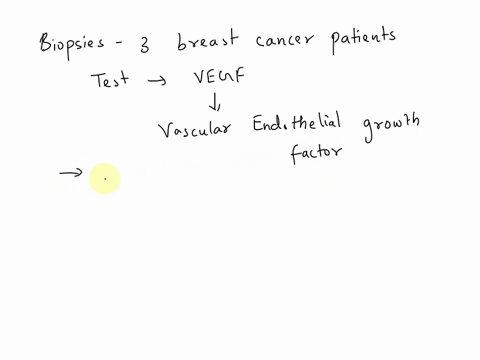 Biopsies - 3 breast cancer patients
Test → VEGF
↓
Vascular Endothelial growth
factor
→